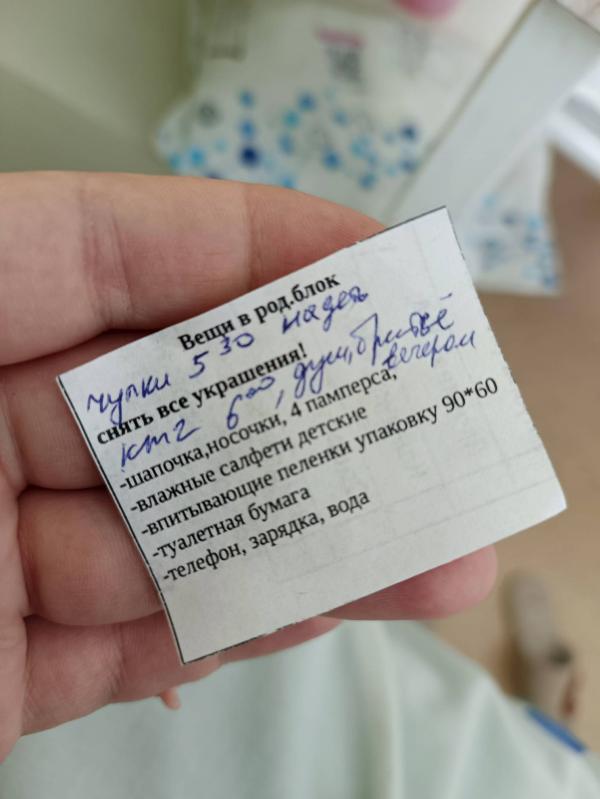 Вещи в род.блок
чулки 5³⁰ надеть
снять все украшения!
ктг 6⁰⁰, душ, бритьё
вечером
-шапочка,носочки, 4 памперса,
-влажные салфети детские
-впитывающие пеленки упаковку 90*60
-туалетная бумага
-телефон, зарядка, вода